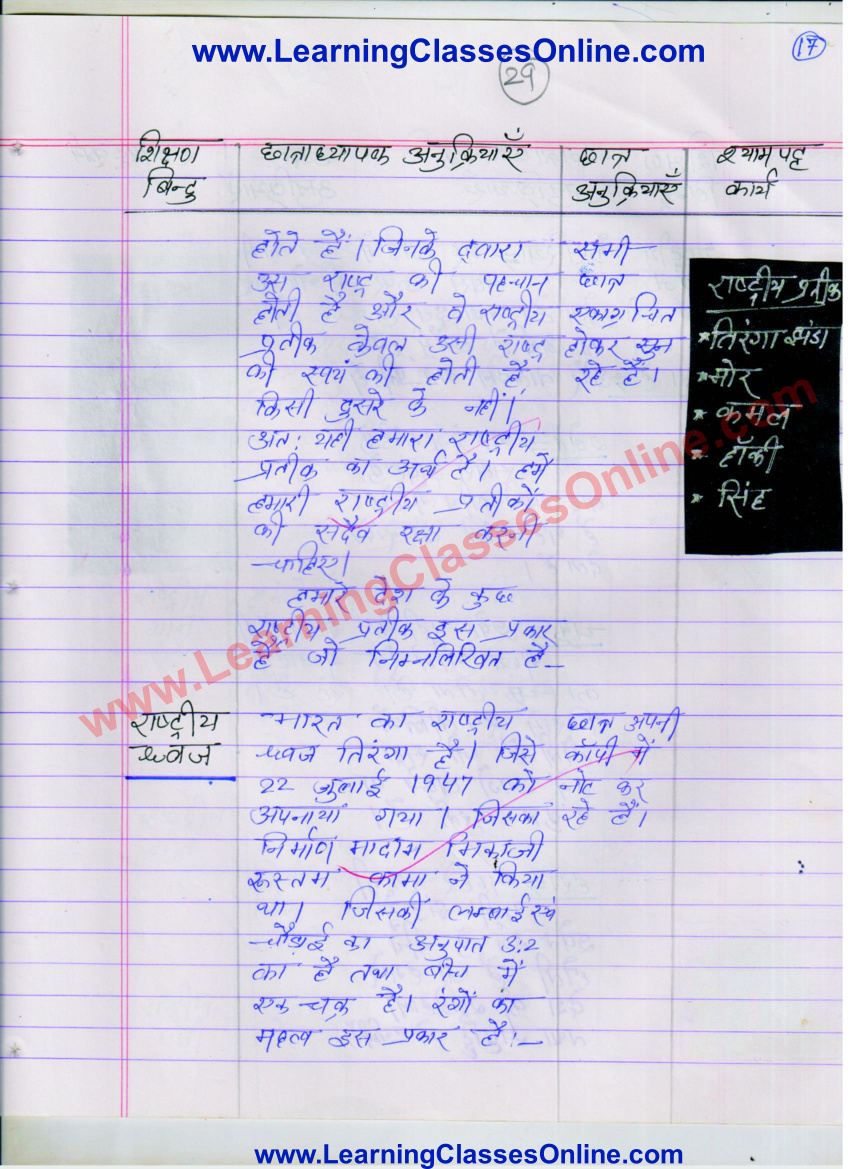 www.LearningClassesOnline.com
17
29
शिक्षण बिन्दु
छात्राध्यापक अनुक्रियाएँ
छात्र अनुक्रियाएँ
श्यामपट्ट कार्य
होते हैं। जिनके द्वारा
उस राष्ट्र की पहचान
होती है और वे राष्ट्रीय
प्रतीक केवल उसी राष्ट्र
की स्वयं की होती है
किसी दुसरे के नहीं।
अतः यही हमारा राष्ट्रीय
प्रतीक का अर्थ है। हमें
हमारी राष्ट्रीय प्रतीकों
की सदैव रक्षा करनी
चाहिए।
हमारे देश के कुछ
राष्ट्रीय प्रतीक इस प्रकार
है जो निम्नलिखित है–
सभी
छात्र
एकाग्रचित
होकर सुन
रहे हैं।
राष्ट्रीय प्रतीक
* तिरंगा झंडा
* मोर
* कमल
* हॉकी
* सिंह
राष्ट्रीय
ध्वज
भारत का राष्ट्रीय
ध्वज तिरंगा है। जिसे
22 जुलाई 1947 को
अपनाया गया। जिसका
निर्माण मादाम भिकाजी
रूस्तम कामा ने किया
था। जिसकी लम्बाई एवं
चौड़ाई का अनुपात 3:2
का है तथा बीच में
एक चक्र है। रंगों का
महत्व इस प्रकार है:–
छात्र अपनी
कॉपी में
नोट कर
रहे हैं।
www.LearningClassesOnline.com
www.LearningClassesOnline.com